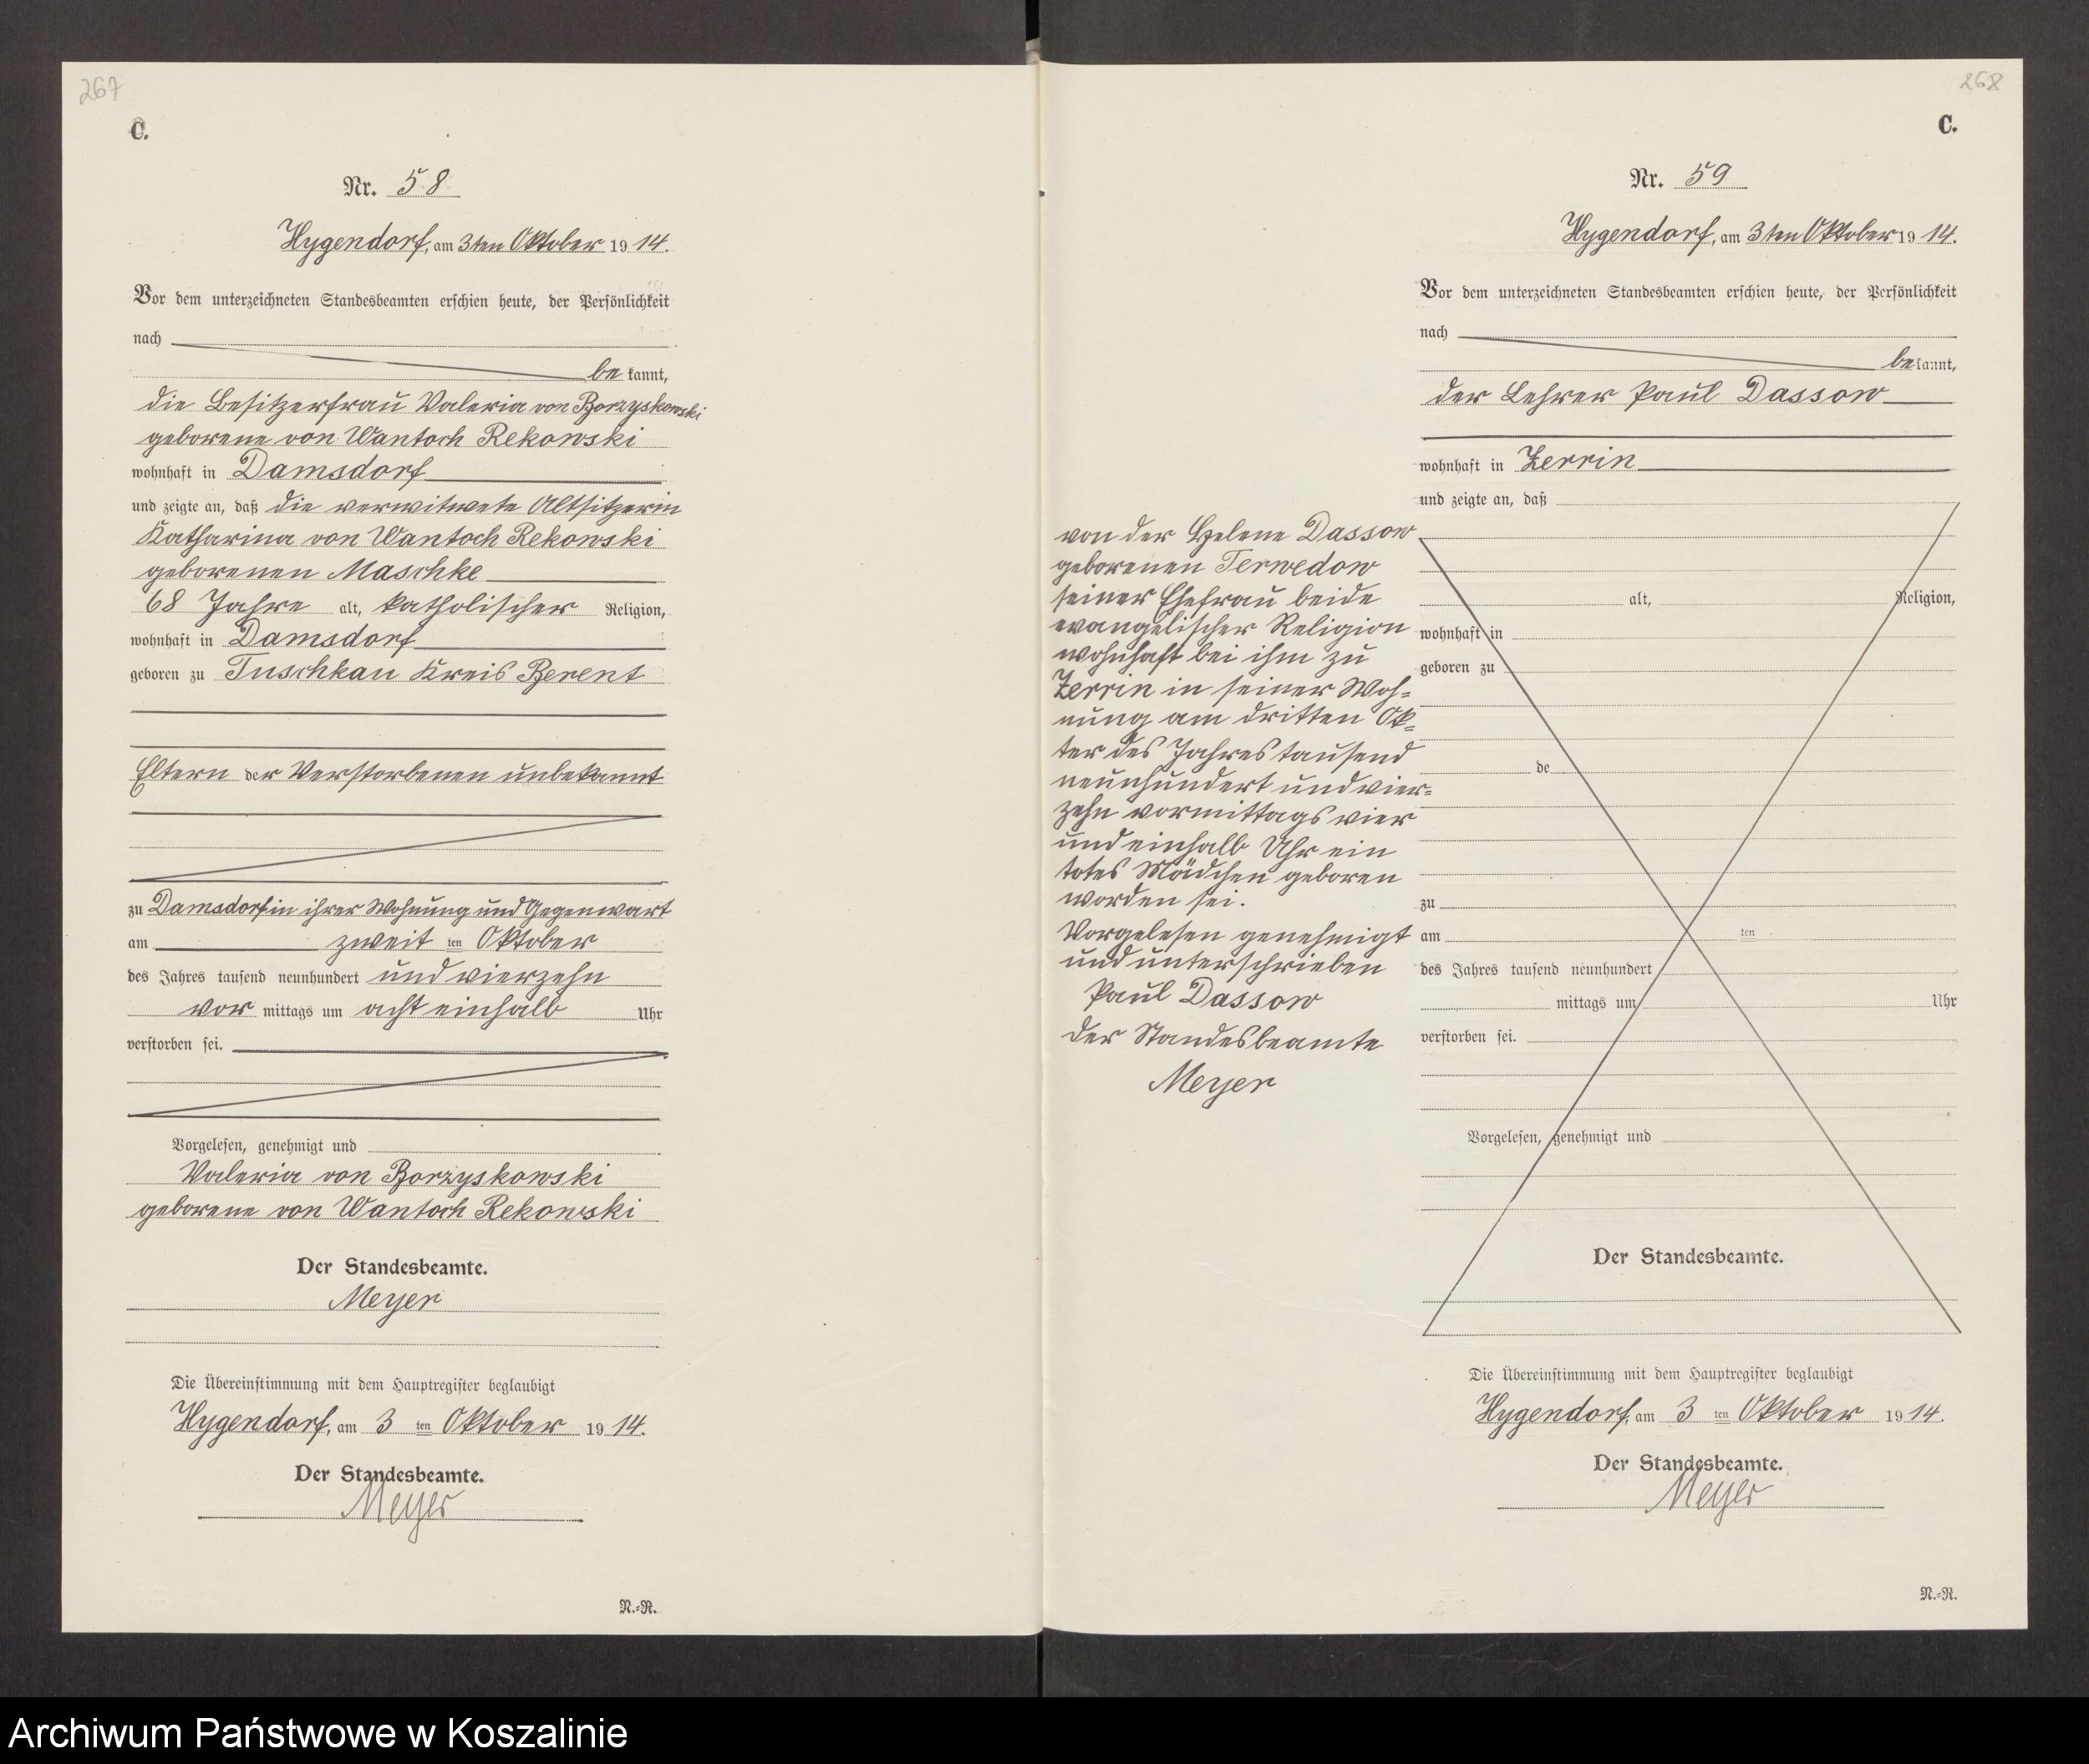 267
C.
Nr. 58
Hygendorf, am 3ten Oktober 1914.
Vor dem unterzeichneten Standesbeamten erschien heute, der Persönlichkeit
nach
bekannt,
die Besitzerfrau Valeria von Borzyskowski
geborene von Wantoch Rekowski
wohnhaft in Damsdorf
und zeigte an, daß die verwitwete Altsitzerin
Katharina von Wantoch Rekowski
geborenen Maschke
68 Jahre alt, katholischer Religion,
wohnhaft in Damsdorf
geboren zu Tuschkau Kreis Berent
Eltern der Verstorbenen unbekannt
zu Damsdorf in ihrer Wohnung und Gegenwart
am zweit ten Oktober
des Jahres tausend neunhundert und vierzehn
vor mittags um acht einhalb Uhr
verstorben sei.
Vorgelesen, genehmigt und
Valeria von Borzyskowski
geborene von Wantoch Rekowski
Der Standesbeamte.
Meyer
Die Übereinstimmung mit dem Hauptregister beglaubigt
Hygendorf, am 3 ten Oktober 1914.
Der Standesbeamte.
Meyer
N.-R.
268
C.
Nr. 59
Hygendorf, am 3ten Oktober 1914.
Vor dem unterzeichneten Standesbeamten erschien heute, der Persönlichkeit
nach
bekannt,
der Lehrer Paul Dassow
wohnhaft in Zerrin
und zeigte an, daß
von der Helene Dassow
geborenen Terwedow
seiner Ehefrau beide
evangelischer Religion
wohnhaft bei ihm zu
Zerrin in seiner Woh=
nung am dritten Ok=
ter des Jahres tausend
neunhundert und vier=
zehn vormittags vier
und einhalb Uhr ein
totes Mädchen geboren
worden sei.
Vorgelesen genehmigt
und unterschrieben
Paul Dassow
der Standesbeamte
Meyer
alt, Religion,
wohnhaft in
geboren zu
de
zu
am ten
des Jahres tausend neunhundert
mittags um Uhr
verstorben sei.
Vorgelesen, genehmigt und
Der Standesbeamte.
Die Übereinstimmung mit dem Hauptregister beglaubigt
Hygendorf, am 3 ten Oktober 1914.
Der Standesbeamte.
Meyer
N.-R.
Archiwum Państwowe w Koszalinie